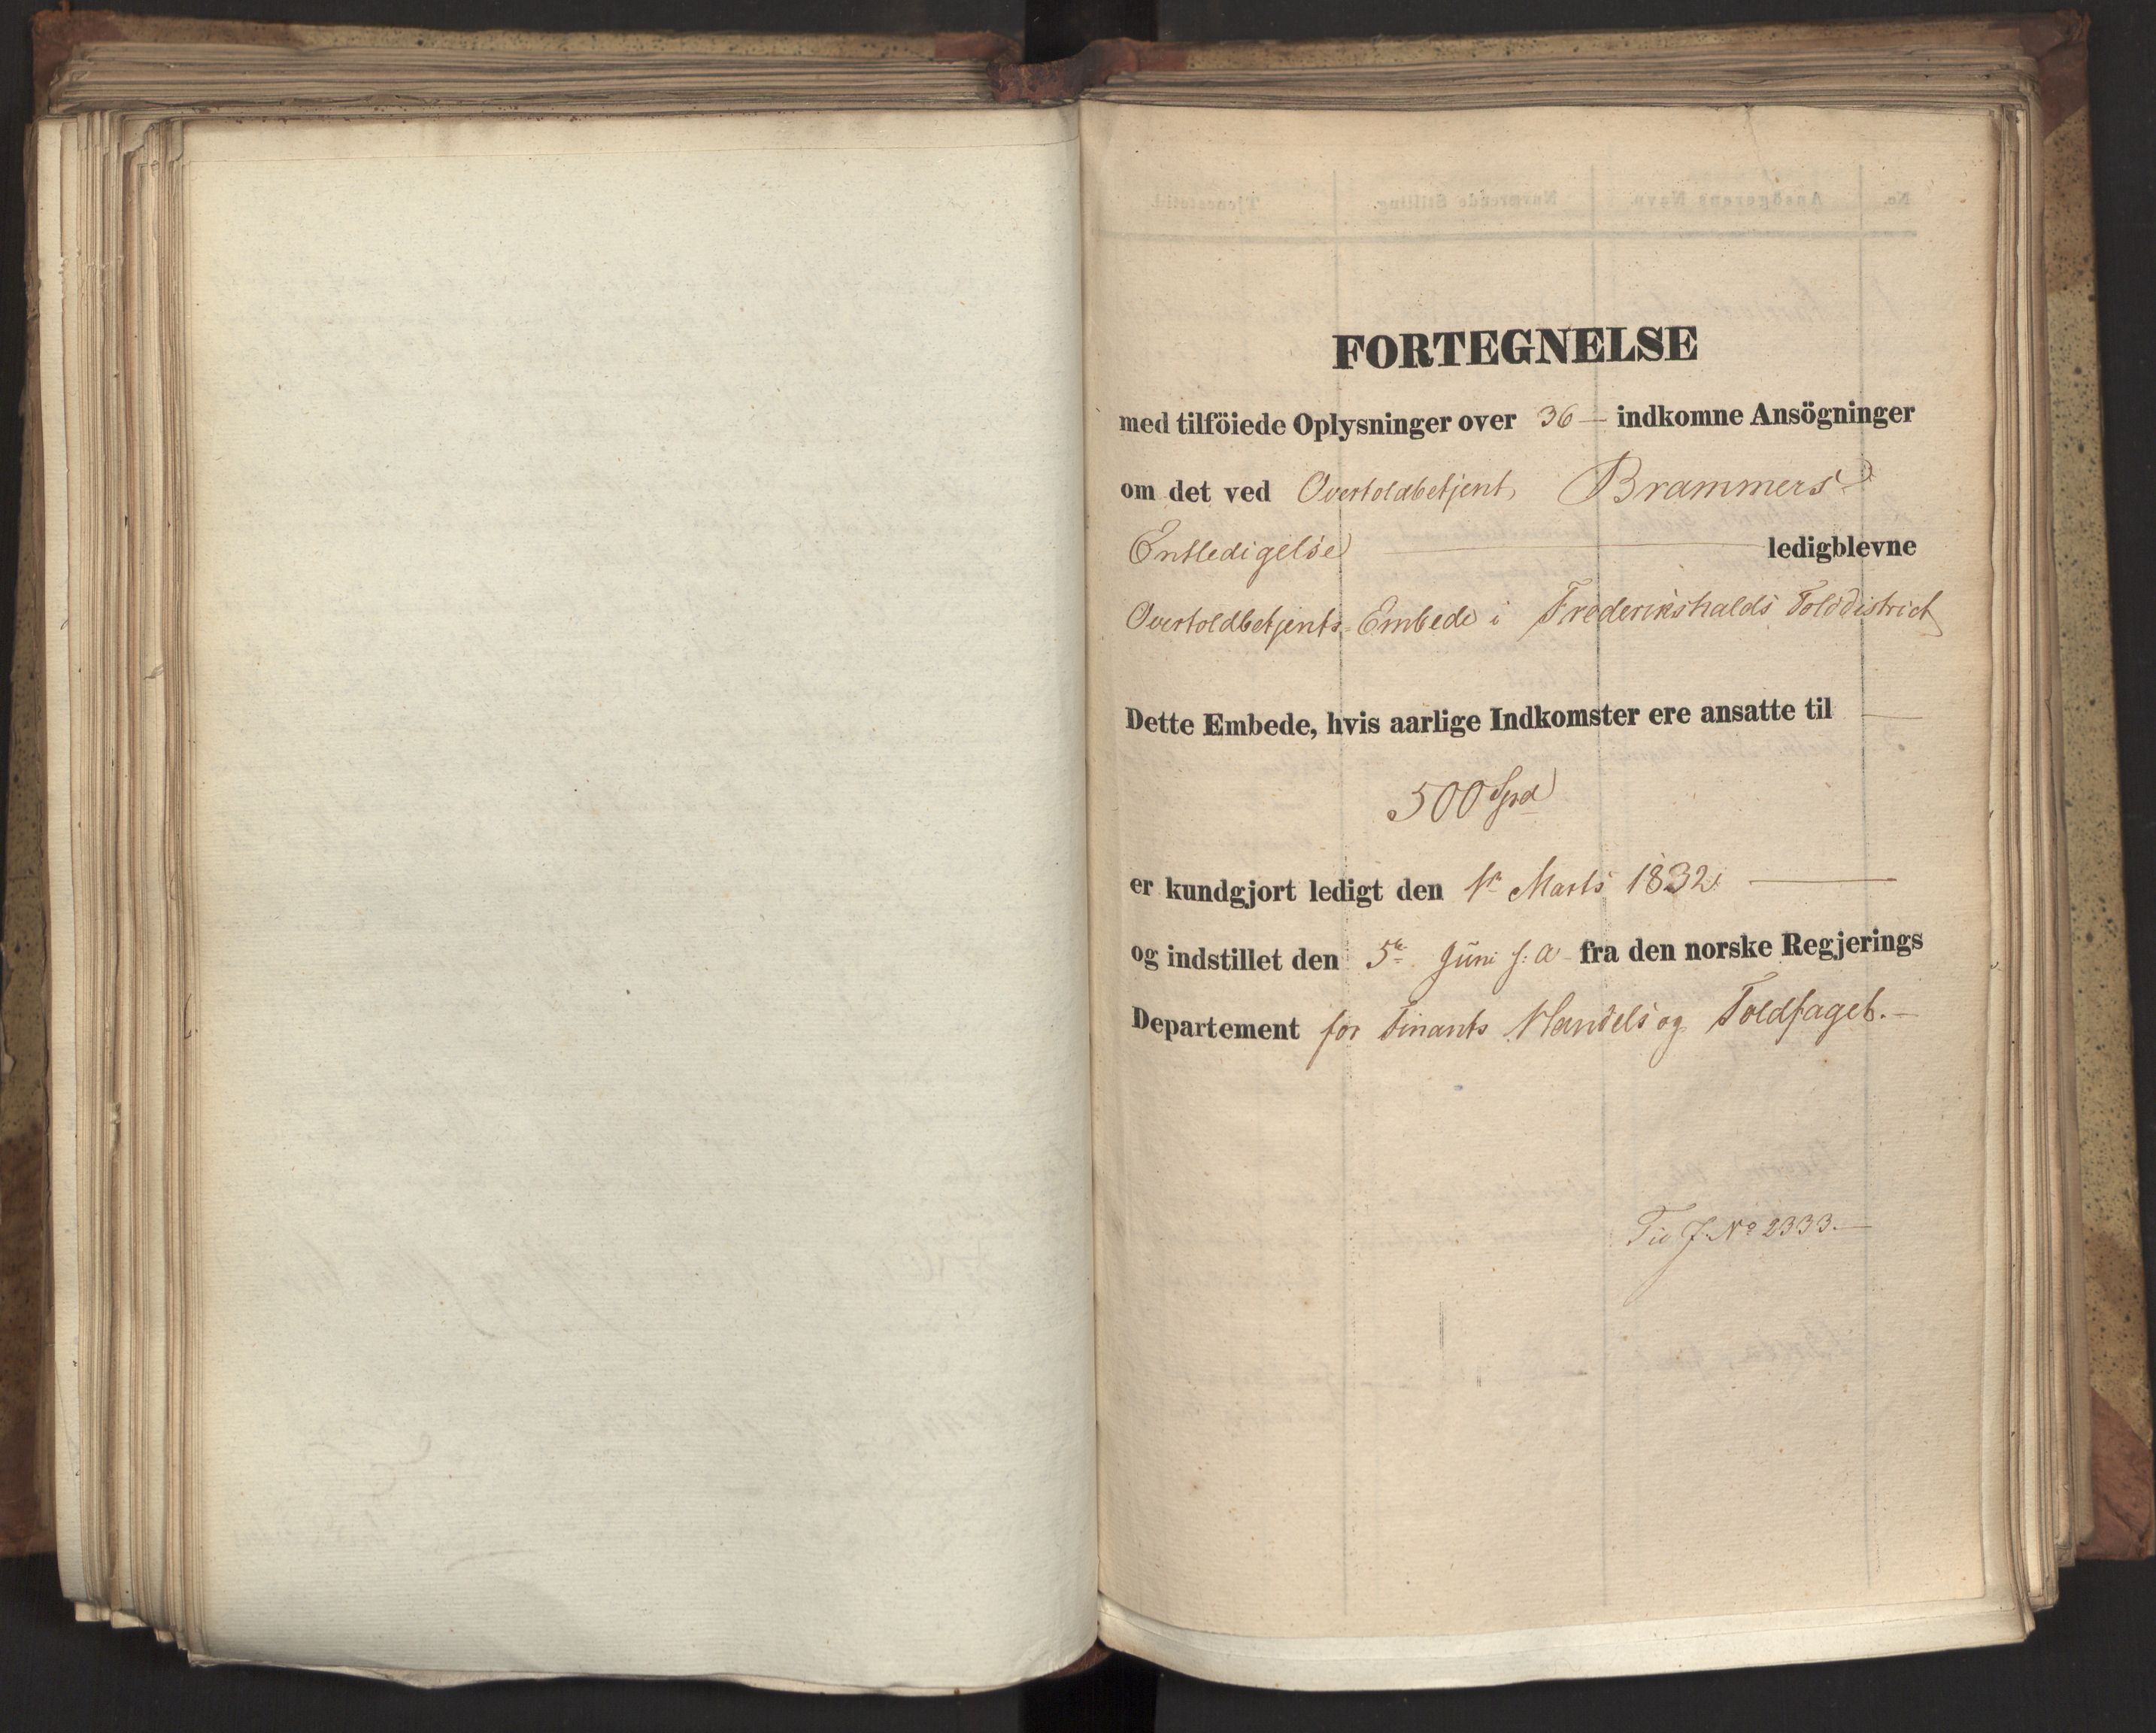 FORTEGNELSE
med tilföiede Oplysninger over 36 — indkomne Ansögninger
om det ved Overtoldbetjent Brammers
Entledigelse — ledigblevne
Overtoldbetjents-Embede i Frederikshalds Tolddistrict
Dette Embede, hvis aarlige Indkomster ere ansatte til —
500 Spd
er kundgjort ledigt den 1ste Marts 1832 —
og indstillet den 5te Juni s: A fra den norske Regjerings
Departement for Finants Handels og Toldfaget. —
Til J. No 2333. —